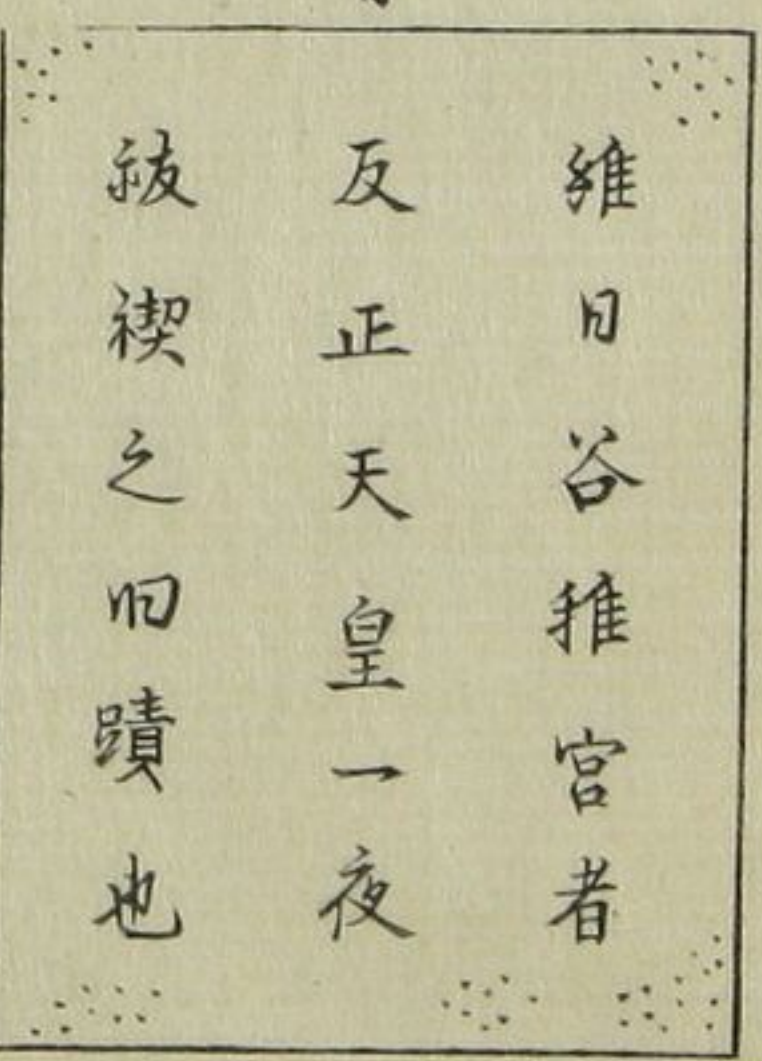 維日谷稚宮者
反正天皇一夜
祓禊之旧蹟也